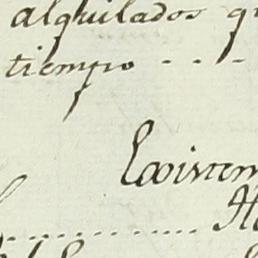 alquilados q
tiempo - - -
Existen